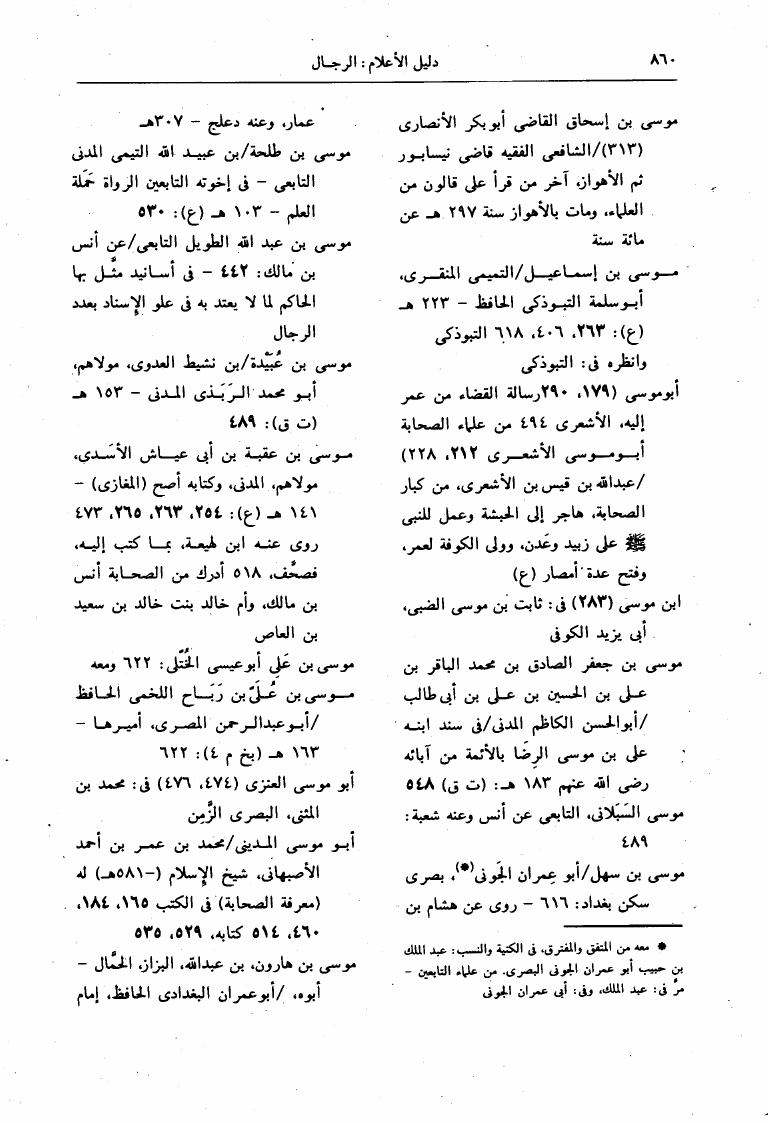 ٨٦٠
دليل الأعلام: الرجـال
موسى بن إسحاق القاضى أبوبكر الأنصارى
(٣١٣)/الشافعى الفقيه قاضى نيسابـور
ثم الأهواز، آخر من قرأ على قالون من
العلماء، ومات بالأهواز سنة ٢٩٧ هـ عن
مائة سنة
مـوسى بن إسمـاعيـل/التميمى المنقـرى،
أبـوسلمة التبـوذكى الحافظ – ٢٢٣ هـ
(ع): ٢٦٣، ٤٠٦، ٦١٨ التبوذكى
وانظره فى: التبوذكى
أبوموسى (١٧٩، ٢٩٠رسالة القضاء من عمر
إليه، الأشعرى ٤٩٤ من علماء الصحابة
أبـومـوسى الأشعـرى ٢١٢، ٢٢٨)
/عبدالله بن قيس بن الأشعرى، من كبار
الصحابة، هاجر إلى الحبشة وعمل للنبى
ﷺ على زبيد وعَدن، وولى الكوفة لعمر،
وفتح عدة أمصار (ع)
ابن موسى (٢٨٣) فى: ثابت بن موسى الضبى،
أبى يزيد الكوفى
موسى بن جعفر الصادق بن محمد الباقر بن
على بن الحسين بن على بن أبى طالب
/أبوالحسن الكاظم المدنى/فى سند ابنـه
على بن موسى الرِضَا بالأئمة من آبائه
رضى الله عنهم ١٨٣ هـ: (ت ق) ٥٤٨
موسى السَبَلانى، التابعى عن أنس وعنه شعبة:
٤٨٩
موسى بن سهل/أبو عِمران الجَونى(*)، بصرى
سكن بغداد: ٦١٦ – روى عن هشام بن
* معه من المتفق والمفترق، فى الكنية والنسب: عبد الملك
بن حبيب أبو عمران الجونى البصرى. من علماء التابعين –
مرَّ فى: عبد الملك، وفى: أبى عمران الجونى
عمار، وعنه دعلج – ٣٠٧هـ
موسى بن طلحة/بن عبيـد الله التيمى المدنى
التابعى – فى إخوته التابعين الرواة حَمَلة
العلم – ١٠٣ هـ (ع): ٥٣٠
موسى بن عبد الله الطويل التابعى/عن أنس
بن مالك: ٤٤٢ – فى أسانيد مثَّل بها
الحاكم لما لا يعتد به فى علو الإسناد بعدد
الرجال
موسى بن عُبَيْدة/بن نشيط العدوى، مولاهم،
أبـو محمد الـرَبَـذى المـدنى – ١٥٣ هـ
(ت ق): ٤٨٩
مـوسى بن عقبـة بن أبى عيـاش الأسَـدى،
مولاهم، المدنى، وكتابه أصح (المغازى) –
١٤١ هـ (ع): ٢٥٤، ٢٦٣، ٢٦٥، ٤٧٣
روى عنـه ابن لهيعـة، بمـا كتب إليـه،
فصحَّف، ٥١٨ أدرك من الصحـابة أنس
بن مالك، وأم خالد بنت خالد بن سعيد
بن العاص
موسى بن عَلِى أبوعيسى الخُتَّلى: ٦٢٢ ومعه
مـوسى بن عُـلَىّ بن رَبَـاح اللخمى الحـافظ
/أبـوعبدالـرحمن المصـرى، أميـرهـا –
١٦٣ هـ (بخ م ٤): ٦٢٢
أبو موسى العنزى (٤٧٤، ٤٧٦) فى: محمد بن
المثنى، البصرى الزَّمِن
أبـو موسى المـدينى/محمد بن عمـر بن أحمد
الأصبهانى، شيخ الإسلام (–٥٨١هـ) له
(معرفة الصحابة) فى الكتب ١٦٥، ١٨٤،
٤٦٠، ٥١٤ كتابه، ٥٢٩، ٥٣٥
موسى بن هارون، بن عبدالله، البزاز، الحمَّال –
أبوه، /أبوعمران البغدادى الحافظ، إمام